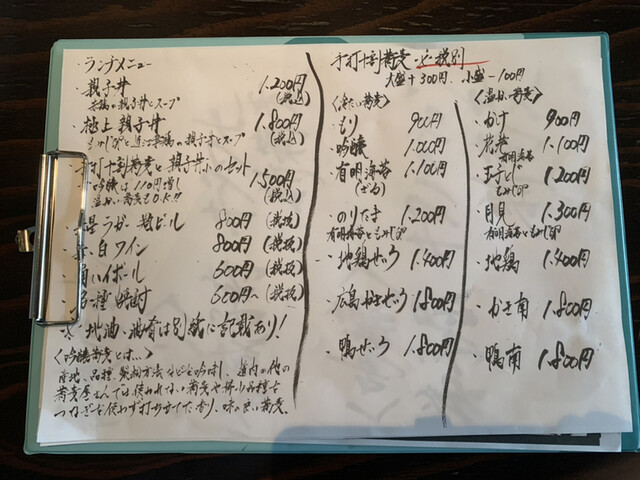 ・ランチメニュー
・親子丼 1,200円
(税込)
・極上親子丼 1,800円
(税込)
・手打十割蕎麦と親子丼小のセット
吟醸は110円増し 1,500円
温かい蕎麦もO.K!! (税込)
ラガー 瓶ビル 800円 (税抜)
白ワイン 800円 (税抜)
ハイボール 600円 (税抜)
各種焼酎 600円〜 (税抜)
地酒・酒肴は別紙に記載あり!
〈吟醸蕎麦とは…〉
産地、品種、製粉方法などを吟味し、道内の他の
蕎麦屋さんでは使われない蕎麦や希少品種を
つなぎを使わず打ち立てた香り、味の良い蕎麦。
手打十割蕎麦 ※税別
大盛+300円、小盛-100円
〈冷たい蕎麦〉
・もり 900円
・吟醸 1,000円
・有明海苔 1,100円
(ざる)
・のりたま 1,200円
有明海苔ともみじ卵
・地鶏せいろ 1,400円
・広島かきせいろ 1,800円
・鴨せいろ 1,800円
〈温かい蕎麦〉
・かけ 900円
・花巻 1,100円
有明海苔
・玉子とじ 1,200円
もみじ卵
・月見 1,300円
有明海苔ともみじ卵
・地鶏 1,400円
・かき南 1,800円
・鴨南 1,800円